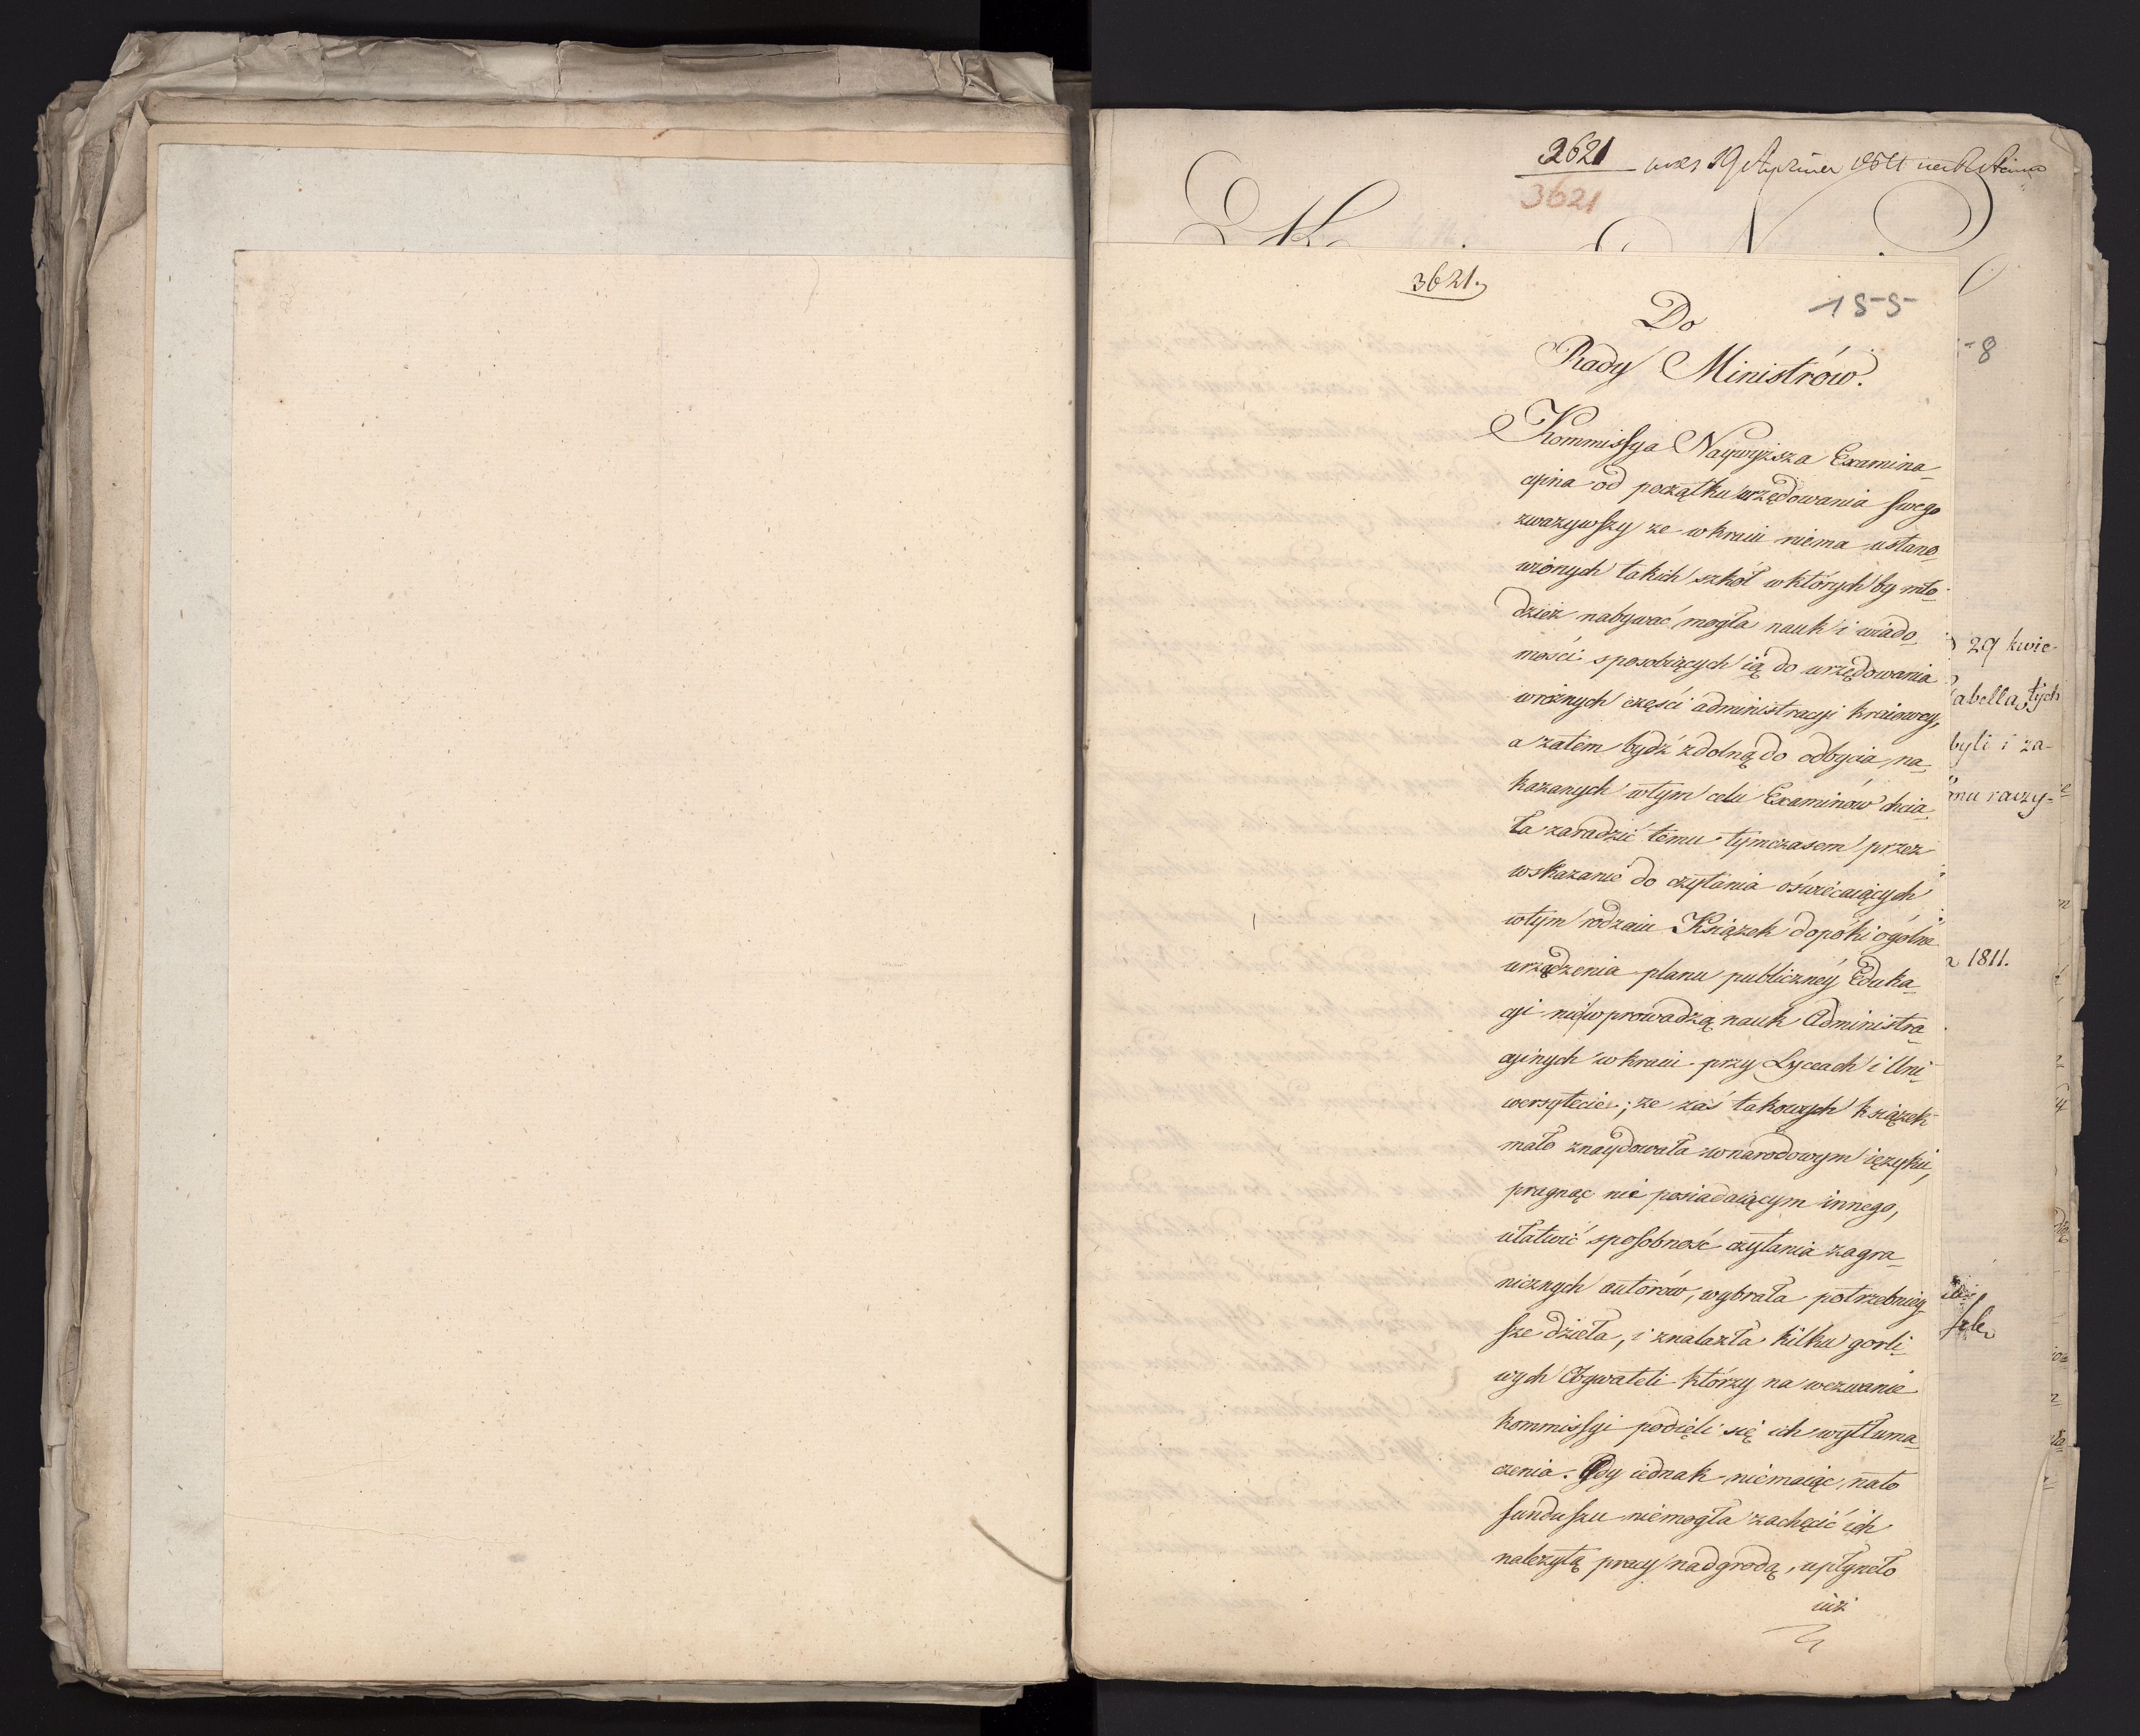 2621
3621
3621.
155
Do
Rady Ministrów.
Kommissya Naywyższa Examina
cyina od początku urzędowania swego
zwazywszy ze w kraiu niema ustano
wionych takich szkół w których by mło
dzież nabywać mogła nauk i wiado
mości sposobiących ią do urzędowania
w róznych części administracyi kraiowey,
a zatem bydź zdolną do odbycia na
kazanych w tym celu Examinów chcia
ła zaradzić temu tymczasem przez
wskazanie do czytania oświecaiących
w tym rodzaiu Książek dopóki ogólne
urządzenia planu publiczney Eduka
cyi niewprowadzą nauk Administra
cyinych w kraiu przy Lyceach i Uni
wersytecie; ze zaś takowych książek
mało znaydowała w narodowym ięzyku,
pragnąc nie posiadaiącym innego,
ułatwić sposobność czytania zagra
nicznych autorów, wybrała potrzebniey
sze dzieła, i znalazła kilku gorli
wych Obywateli którzy na wezwanie
Kommissyi podięli się ich wytłuma
czenia. Gdy iednak niemaiąc nato
funduszu niemogła zachęcić ich
należytą pracy nadgrodą, upłyneło
iuż
8
29 kwie-
abella, tych
byli i za-
mu raczy=
1811.